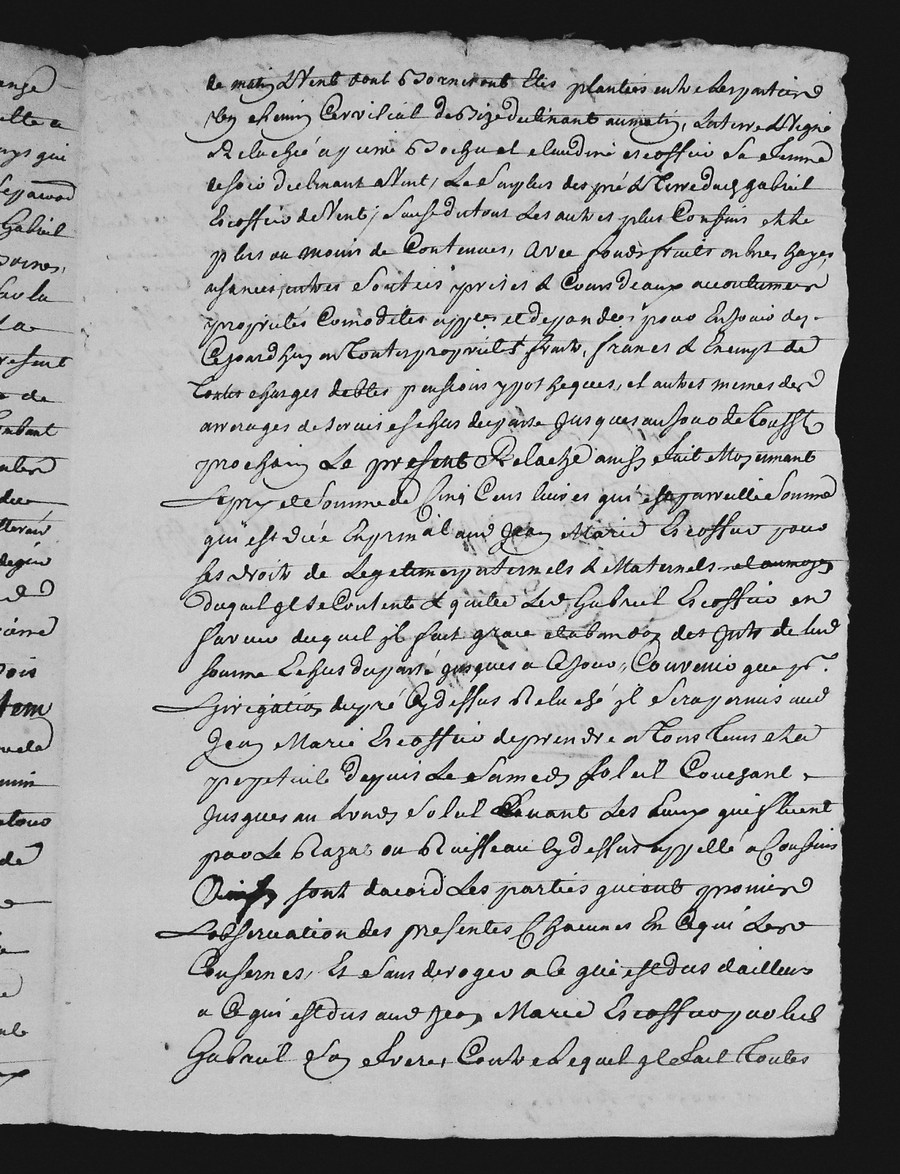 de matin & Vent dont Bornes ont Etés plantées entre les parties
Un chemin Cervitial de Bize declinant au matin, La terre & Vigne
Relachée a pierre Bochu et claudine escoffier Sa femme
de soir declinant a Vent, Le Surplus des pré & Terre dud gabriel
Escoffier de Vent, Sauf du tout Les autres plus Confins et de
plus ou moins de Contenues, avec fonds fruits ombres hayes
aisances entrées Sorties prises & Cours deaux accoutumées
proprietés Comodités app.es et dependces pour En jouir des
Cejourdhuy en Toutes proprietés & fruits, francs & Exempt de
Toutes charges debtes pensions ypotheques, et autres memes des
arrerages de servis eschus du passé Jusques au jour de Toussts
prochain Le present Relaché ainsy fait Moyennant
Le prix et Somme de Cinq Cens livres qui est pareille Somme
qui est düe En prinal aud Jean Marie Escoffier pour
ses droits de Legitimes paternels & Maternels et au moyen
duquel yl se Contente & quitte Led Gabriel Escoffier en
faveur duquel yl fait grace et abandon des Jnts de lad
somme Echus du passé jusques a ce jour, Convenu que pr.
Lirrigation du pré Cy dessus Relaché yl sera permis aud
Jean Marie Escoffier de prendre a Tous Tems et a
perpetuité Depuis Le Samedy Soleil Couchant
Jusques au Lundy Soleil Levant Les Eaux qui fluent
par Le Razat ou Ruisseau Cy dessus appellé a Confins
Ainsy sont dacord Les parties qui ont promis
Lobservation des presentes Chacunes En Ce qui Les
Consernes, Et Sans deroger a Ce qui est dus dailleurs
a Ce qui est dus aud Jean Marie Escoffier par led
Gabriel Son frere, Contre Lequel yl fait Toutes